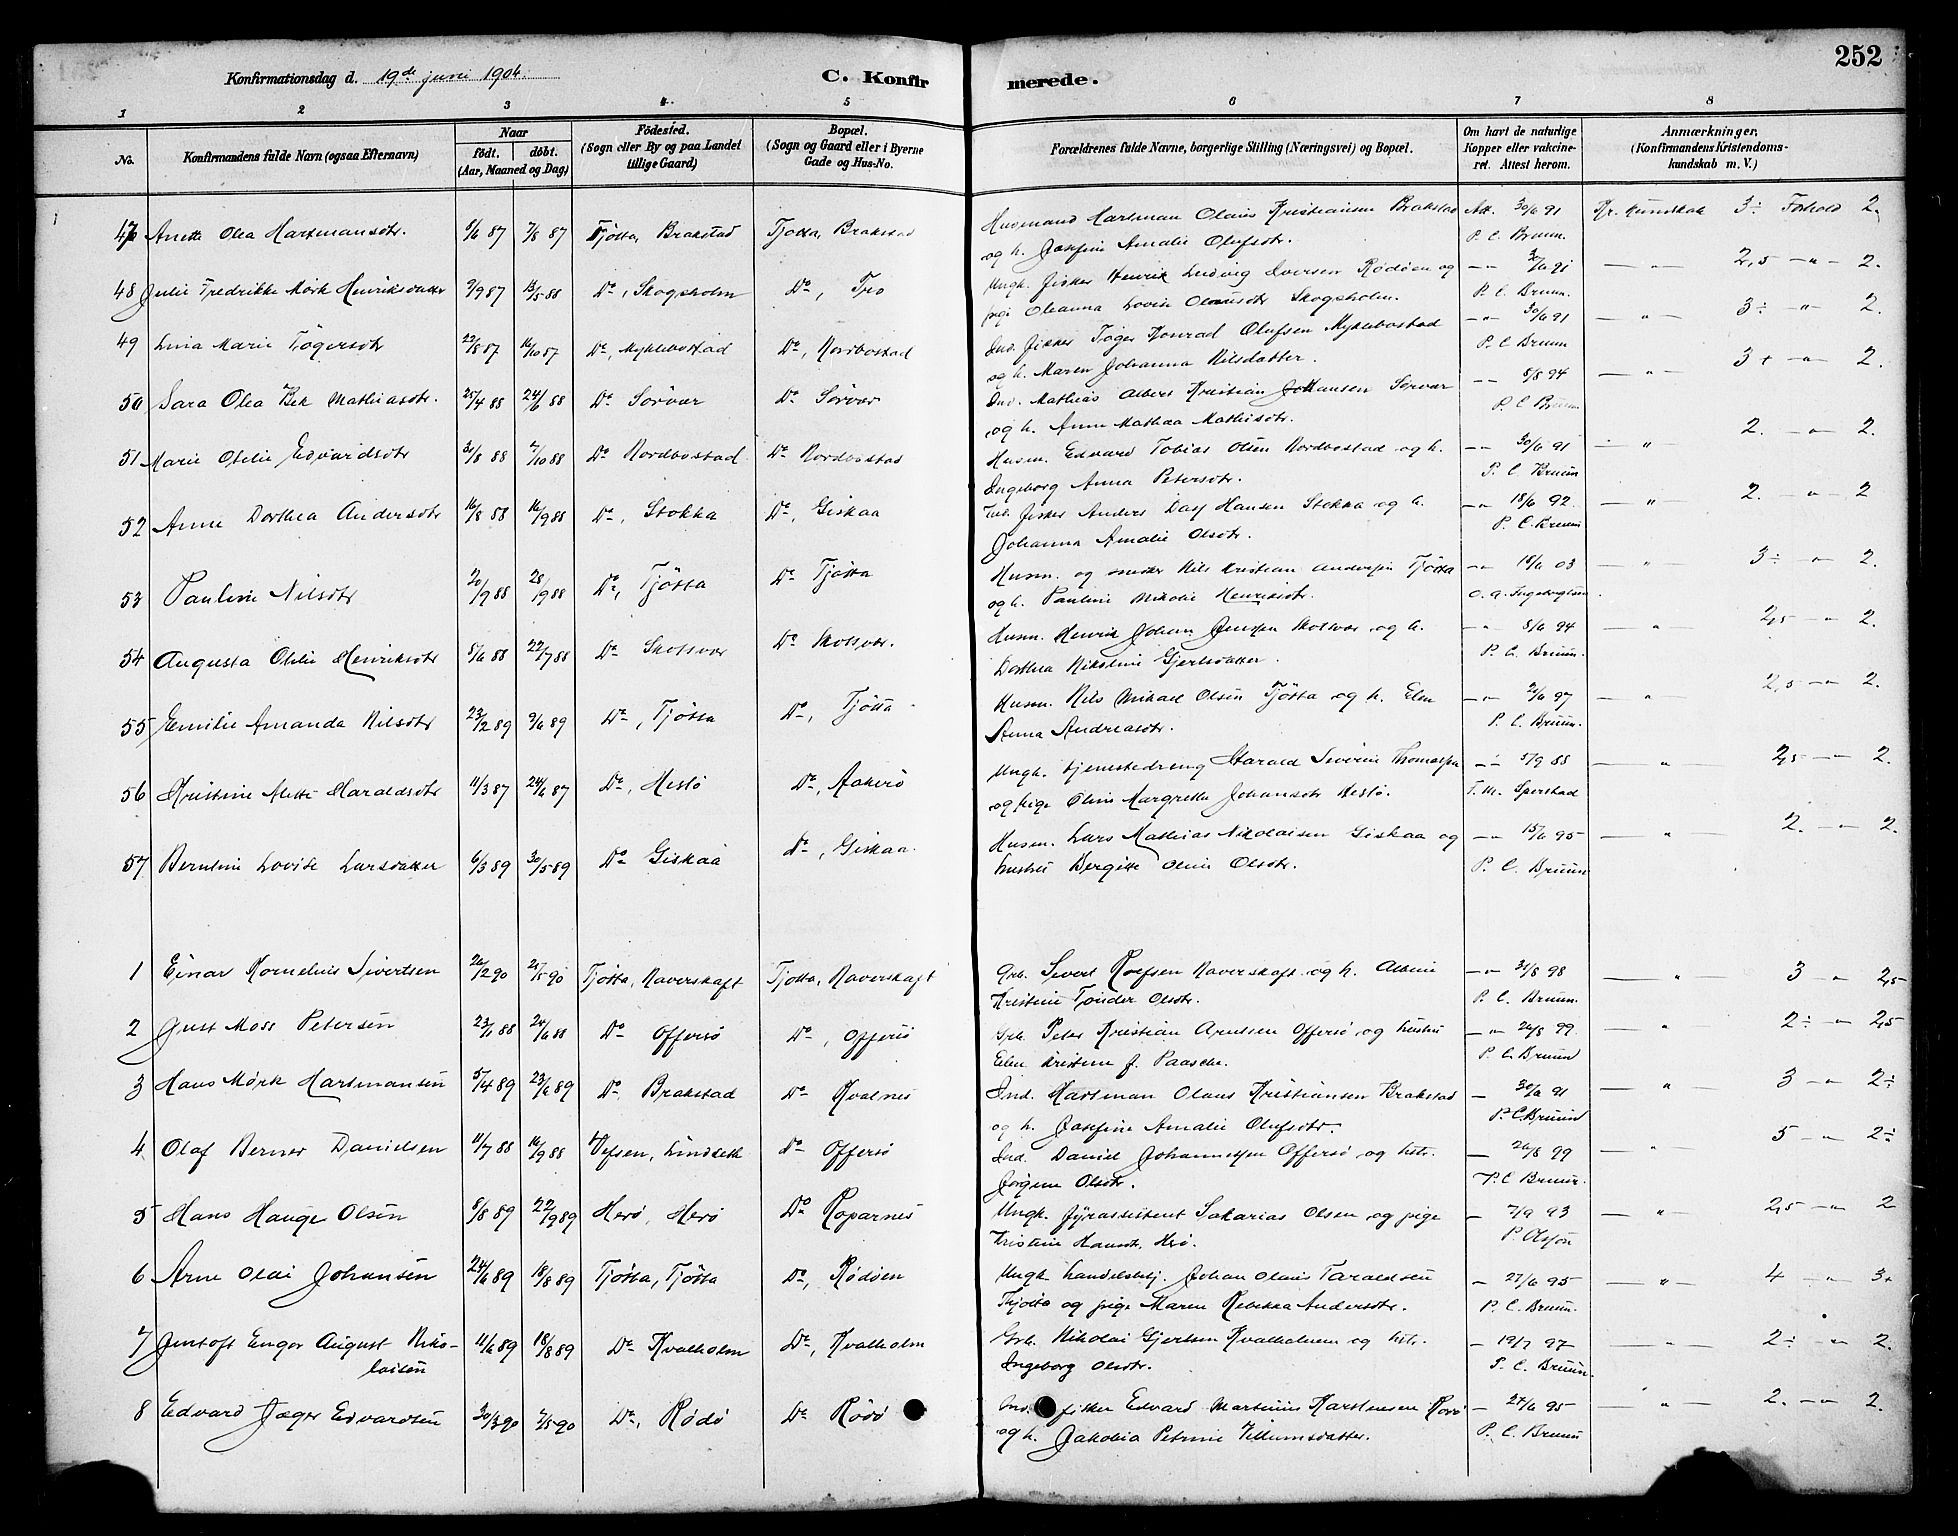 252
Konfirmationsdag d. 19de juni 1904.
C. Konfirmerede.
1 2 3 4 5 6 7 8
No.
Konfirmandens fulde Navn (ogsaa Efternavn)
Naar
födt. döbt.
(Aar, Maaned og Dag)
Födested.
(Sogn eller By og paa Landet
tillige Gaard)
Bopæl.
(Sogn og Gaard eller i Byerne
Gade og Hus-No.
Forældrenes fulde Navne, borgerlige Stilling (Næringsvei) og Bopæl.
Om havt de naturlige
Kopper eller vakcine-
ret. Attest herom.
Anmærkninger.
(Konfirmandens Kristendoms-
kundskab m. V.)
47 Anette Olea Hartmansdtr. 9/6 87 7/8 87 Tjøtta, Brakstad Tjøtta, Brakstad Husmand Hartman Olaus Kristiansen Brakstad Att. 30/6 91 Kr. kundskab 3÷ Forhold 2.
og h. Josefine Amalie Olufsdtr. P. C. Bruun.
48 Julie Fredrikke Mørk Henriksdatter 9/9 87 13/5 88 Do, Skogsholm Do, Tro Ungk. fisker Henrik Ludvig Iversen Rødøen og 30/6 91 2,5 2.
pige Oleanna Lovise Olausdtr Skogsholm. P. C. Bruun.
49 Lina Marie Tøgersdtr 22/8 87 16/10 87 Do, Myklebostad Do, Nordbostad Ind. fisker Tøger Konrad Olufsen Myklebostad 30/6 91 3÷ 2.
og h. Maren Johanna Nilsdatter. P. C. Bruun
50 Sara Olea Bek Mathiasdtr. 25/4 88 24/6 88 Do Sørvær Do Sørvær Ind. Mathias Albert Kristian Johansen Sørvær 8/8 94 3+ 2.
og h. Anne Mathea Mathisdtr. P. C. Bruun
51 Marie Otelie Edvardsdtr 31/8 88 7/10 88 Do Nordbostad Do Nordbostad Husm. Edvard Tobias Olsen Nordbostad og h. 30/6 91 2. 2.
Ingeborg Anna Petersdtr. P. C. Bruun
52 Anne Dorthea Andersdtr 16/8 88 16/9 88 Do, Stokka Do, Giskaa fisker Anders Dass Hansen Stokka og h. 18/6 92. 2. 2
Johanna Amalie Olsdtr. P. C. Bruun
53 Pauline Nilsdtr 20/9 88 28/9 88 Do, Tjøtta Do Tjøtta Husm. og snedker Nils Kristian Andersen Tjøtta 18/6 03 3÷ 2.
og h. Pauline Nikolie Henriksdtr. O. A. Ingebrigtsen.
54 Augusta Otelie Henriksdtr 8/6 88 22/7 88 Do Skotsvær Do Skotsvær. Husm. Henrik Johan Jensen Skotsvær og h. 8/6 94 2,5 2.
Dorthea Nikoline Gjertsdatter. P. C. Bruun.
55 Emilie Amanda Nilsdtr 23/2 89 9/6 89 Do, Tjøtta Do, Tjøtta Husm. Nils Mikael Olsen Tjøtta og h. Elen 21/6 97 2,5 2.
Anna Andreasdtr. P. C. Bruun.
56 Kristine Mette Haraldsdtr 11/3 87 24/6 87 Do, Hestø Do, Aakerø Ungk. tjenestedreng Harald Severin Thomassen 5/9 88 2,5 2.
og pige Oline Margrethe Johansdtr Hestø. T. M. Sperstad
57 Berntine Lovise Larsdatter 6/3 89 30/5 89 Do Giskaa Do, Giskaa. Husm. Lars Mathias Nikolaisen Giskaa og 15/6 95 2. 2.
hustru Bergitte Oline Olsdtr. P. C. Bruun
1 Einar Kornelius Sivertsen 26/2 90 25/5 90 Tjøtta, Naverskaft Tjøtta, Naverskaft Grb. Sivert Roefsen Naverskaft og h. Albine 31/8 98 3 2,5
Kristine Tønder Olsdtr. P. C. Bruun.
2 Just Moss Petersen 23/1 88 24/6 88 Do Offersø Do, Offersø Grb. Peter Kristian Arntsen Offersø og hustru 26/8 99 2÷ 2,5
Elen Kristine f. Paasche. P. C. Bruun
3 Hans Mørk Hartmansen 5/4 89 23/6 89 Do, Brakstad Do Kvalnes Ind. Hartman Olaus Kristiansen Brakstad 30/6 91 3 2÷
og h. Josefine Amalie Olufsdtr. P. C. Bruun
4 Olaf Berner Danielsen 11/7 88 16/9 88 Vefsen, Lindseth Do Offersø Ind. Daniel Johannessen Offersø og hstr. 26/8 99 5 2÷
Jørgine Olsdtr. P. C. Bruun.
5 Hans Hauge Olsen 8/8 89 22/9 89 Herø, Herø Do Roparnes Ungk. fyrassistent Sakarias Olsen og pige 7/9 93 2,5 2
Kristine Hansdt. Herø. P. Olsen
6 Arne Olai Johansen 24/6 89 18/8 89 Tjøtta, Tjøtta Do, Rødøen Ungk. handelsbetj. Johan Olaus Taraldsen 27/6 95 4 3+
Thjøtta og pige Maren Rebekka Andersdtr. P. C. Bruun.
7 Jentoft Enger August Niko- 11/6 89 18/8 89 Do Kvalholm Do, Kvalholm Grb. Nikolai Gjertsen Kvalholmen og hstr. 19/7 97 2÷ 2.
laisen Ingeborg Olsdtr. P. C. Bruun.
8 Edvard Jæger Edvardsen 30/3 90 7/5 90 Do, Rødø Do Rødø Ind. fisker Edvard Martinius Karstensen Rødø 27/6 95 2. 2.
og h. Jakobia Petrine Villumsdatter. P. C. Bruun